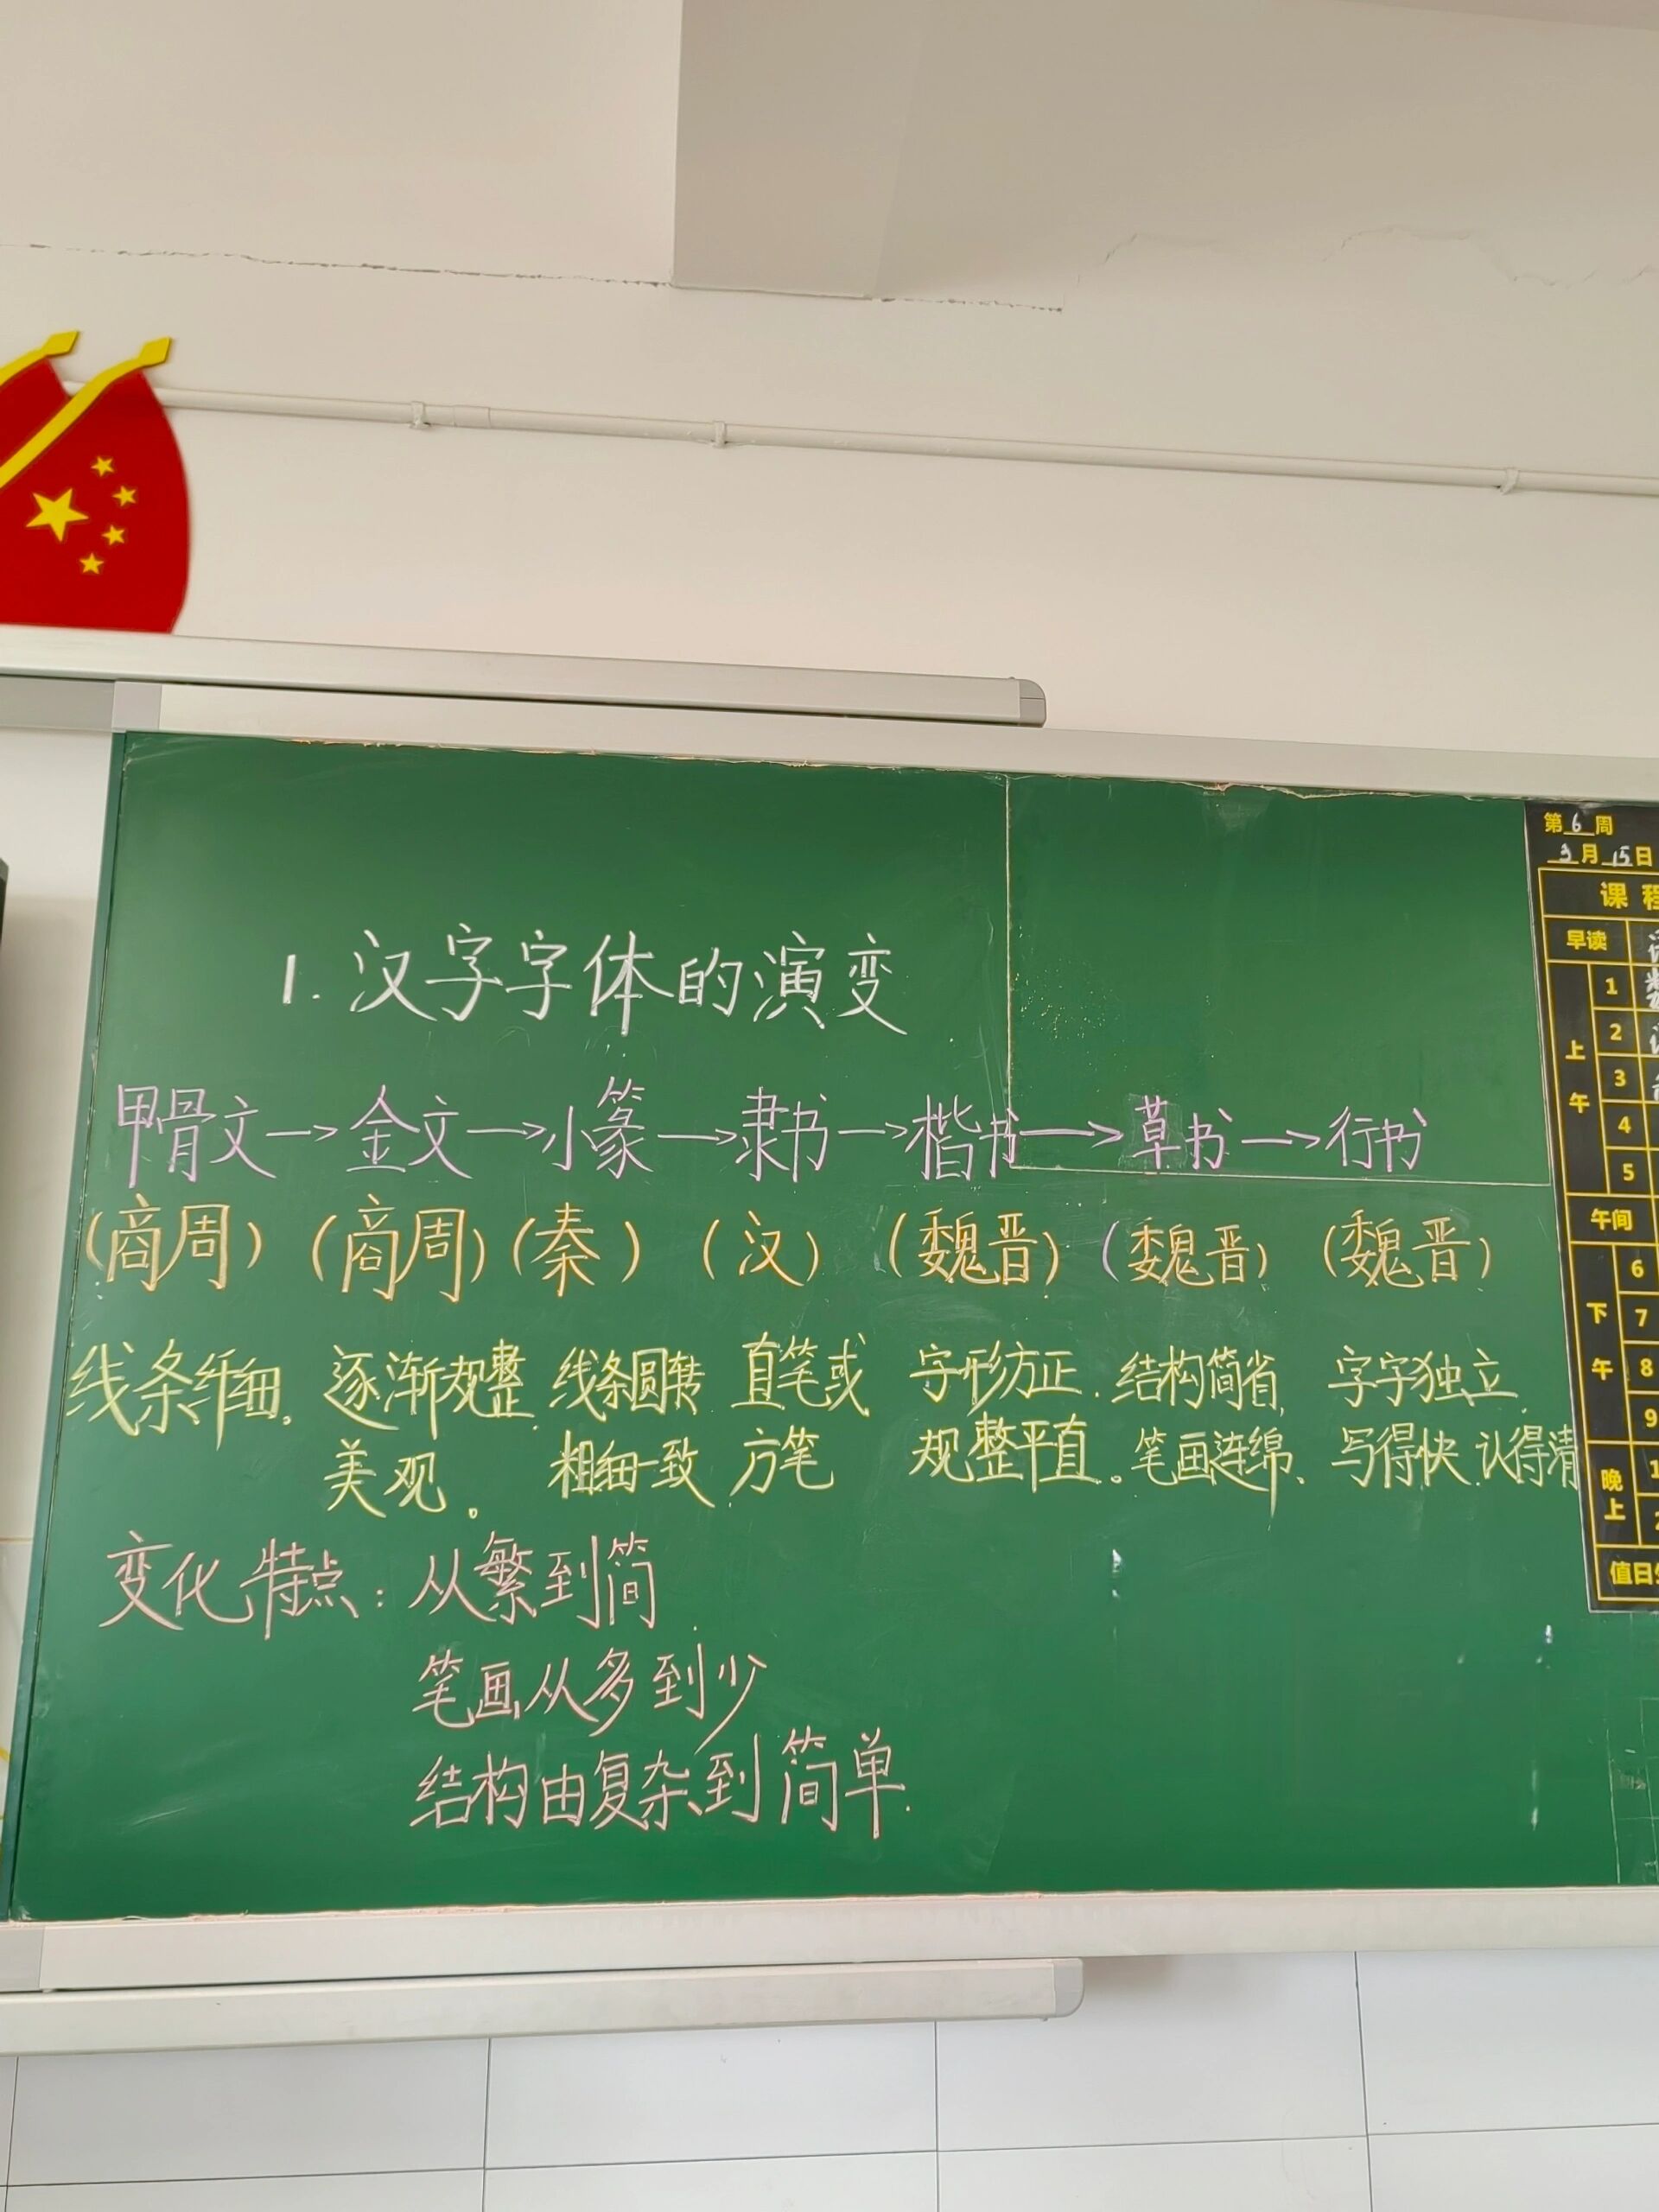 1. 汉字字体的演变
甲骨文→金文→小篆→隶书→楷书→草书→行书
(商周) (商周) (秦) (汉) (魏晋) (魏晋) (魏晋)
线条纤细. 逐渐规整 线条圆转 直笔或 字形方正. 结构简省, 字字独立.
美观。 粗细一致. 方笔 规整平直。 笔画连绵、 写得快.认得清
变化特点:从繁到简
笔画从多到少
结构由复杂到简单.
第6周
3月15日
课程
早读
上午
1
2
3
4
5
午间
下午
6
7
8
9
晚上
1
2
值日